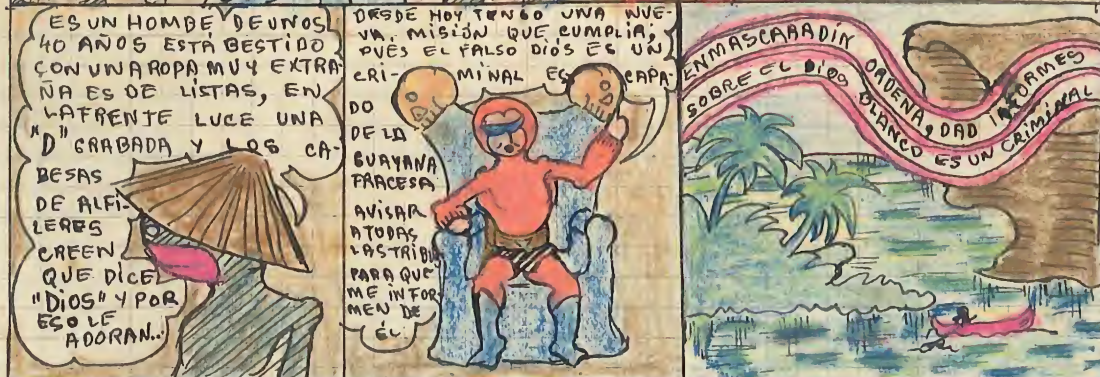 ES UN HOMBE DE UNOS
40 AÑOS ESTÁ BESTIDO
CON UNA ROPA MUY EXTRA-
ÑA ES DE LÍSTAS, EN
LA FRENTE LUCE UNA
"D" GRABADA Y LOS CA-
BESAS
DE ALFI-
LERES
CREEN
QUE DICE
"DIOS" Y POR
ESO LE
ADORAN...
DESDE HOY TENGO UNA NUE-
VA MISIÓN QUE CUMPLIA,
PUÉS EL FALSO DIÓS ES UN
CRI-MINAL ESCAPA-
DO
DE LA
GUAYANA
FRACESA
AVISAR
ATODAS
LAS TRIBUS
PARA QUE
ME INFOR-
MEN DE
ÉL
ENMASCARADIN ORDENA, DAD INFORMES
SOBRE EL DIOS BLANCO ES UN CRIMINAL